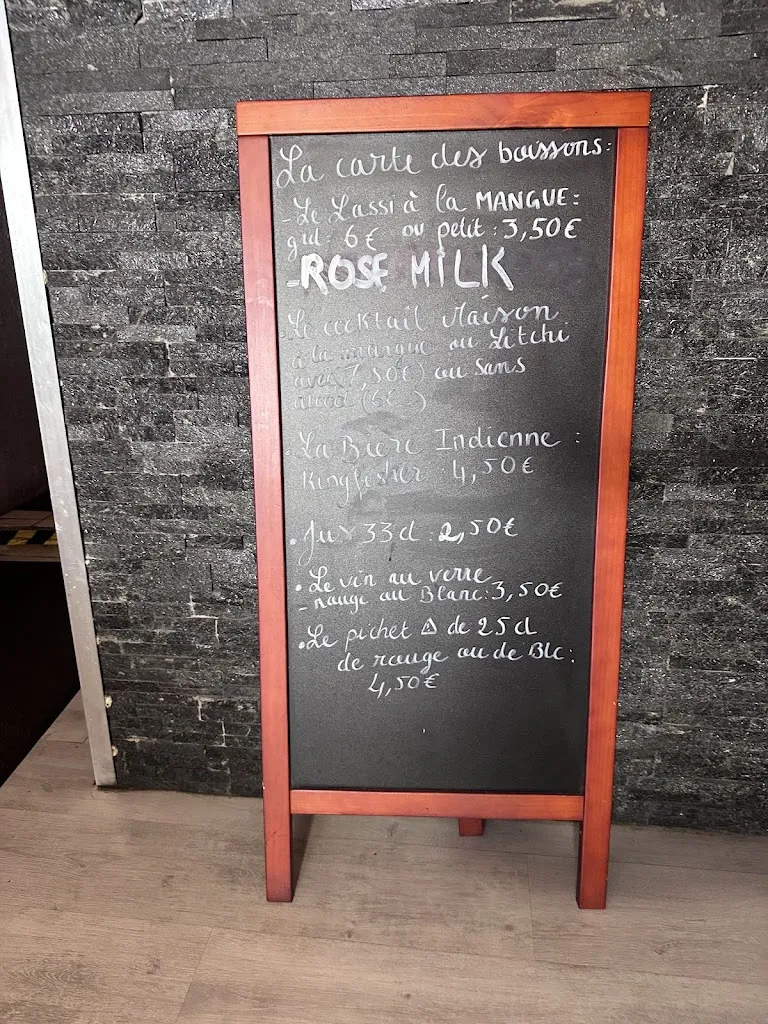 La carte des boissons:
- Le Lassi à la MANGUE:
grd: 6€ ou petit: 3,50€
-ROSE MILK
• Le cocktail Maison
à la mangue ou Litchi
avec (7,50€) ou Sans
alcool (6€)
• La Biere Indienne :
Kingfisher : 4,50€
• Jus 33cl : 2,50€
• Le vin au verre
- rouge ou Blanc: 3,50€
• Le pichet ⚠ de 25cl
de rouge ou de Blc:
4,50€